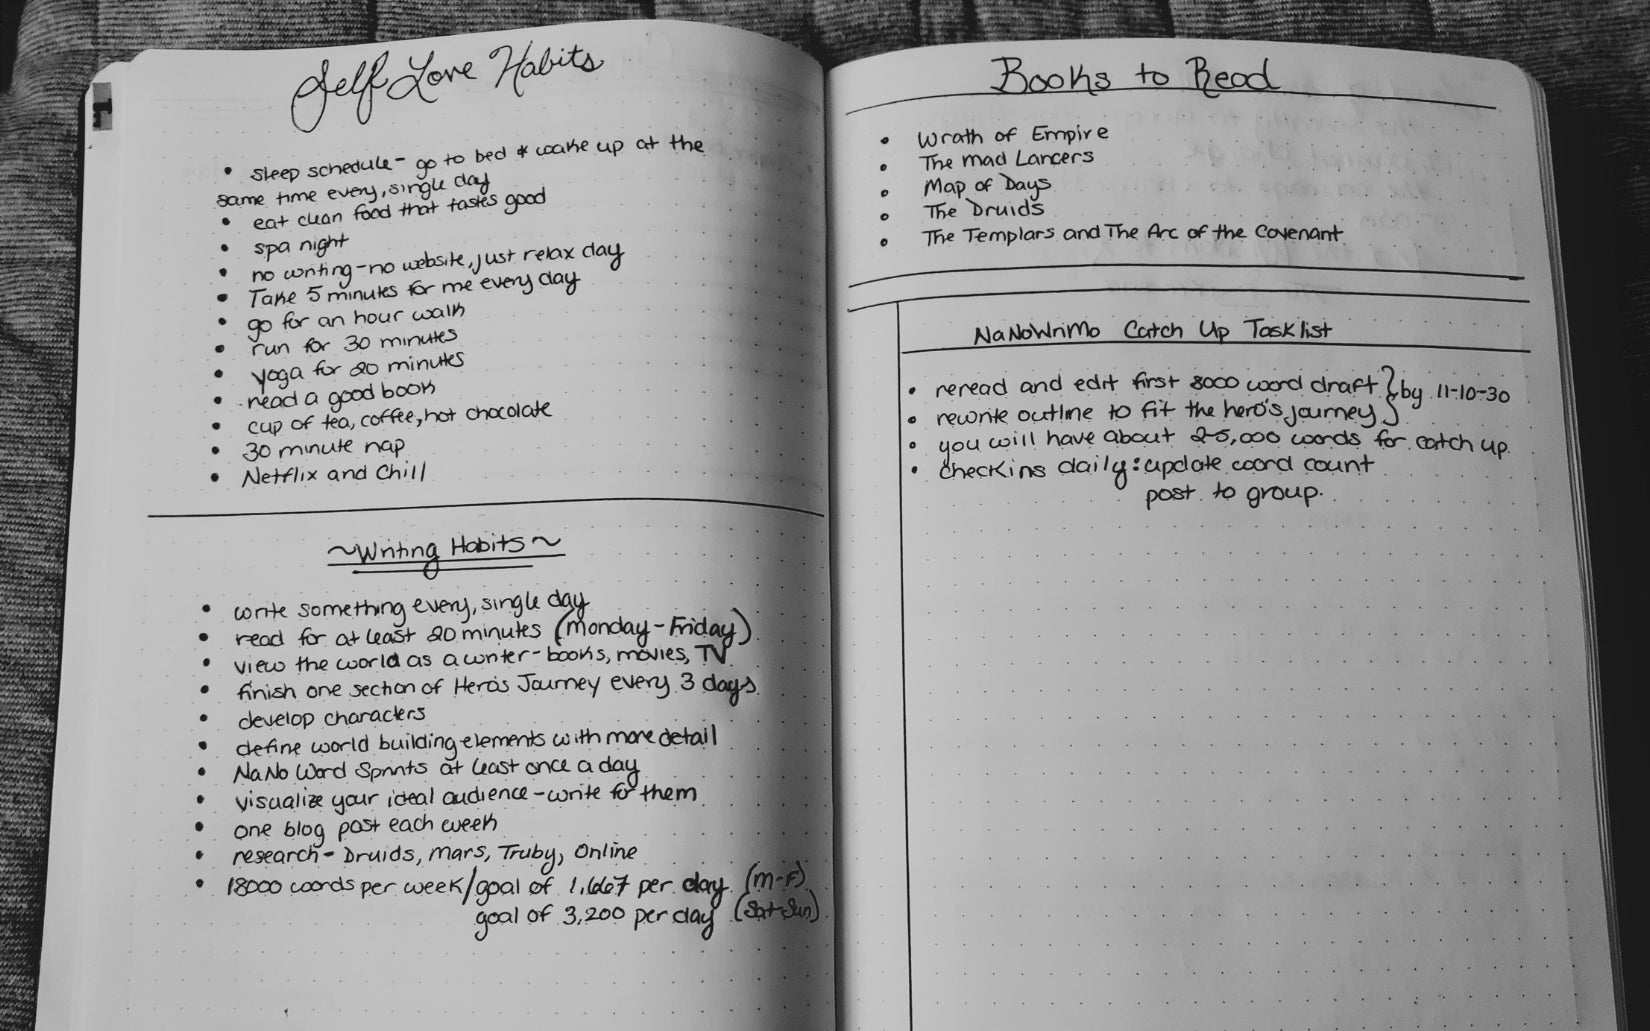 Self Love Habits
• sleep schedule - go to bed & wake up at the
same time every, single day
• eat clean food that tastes good
• spa night
• no writing - no website, just relax day
• Take 5 minutes for me every day
• go for an hour walk
• run for 30 minutes
• yoga for 20 minutes
• read a good book
• cup of tea, coffee, hot chocolate
• 30 minute nap
• Netflix and Chill
~Writing Habits~
• write something every, single day
• read for at least 20 minutes (Monday - Friday)
• view the world as a writer - books, movies, TV
• finish one section of Hero's Journey every 3 days
• develop characters
• define world building elements with more detail
• NaNo Word Sprints at least once a day
• visualize your ideal audience - write for them
• one blog post each week
• research - Druids, Mars, Truby, Online
• 18000 words per week/goal of 1,667 per day (M-F)
goal of 3,200 per day (Sat-Sun)
Books to Read
• Wrath of Empire
• The Mad Lancers
• Map of Days
• The Druids
• The Templars and The Arc of the Covenant
NaNoWriMo Catch Up Tasklist
• reread and edit first 8000 word draft } by 11-10-30
• rewrite outline to fit the hero's journey
• you will have about 25,000 words for catch up
• checkins daily: update word count
post to group.